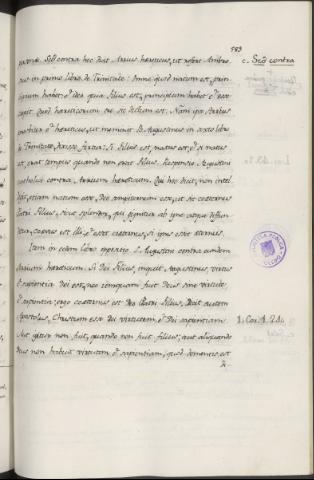 183
patris. Sed contra hoc dicit Arrius hæreticus, ut refert Ambro-
sius in primo libro de Trinitate: Omne quod natum est, prin-
cipium habet: et ideo quia filius est, principium habet et esse
cepit. Quod hæreticorum ore sic dictum est. Nam ipse Arrius
hæreticus, ut meminit B. Augustinus in sexto libro
de Trinitate, dixisse fertur: Si Filius est, natus est, et si natus
est, erat tempus quando non erat Filius. Responsio Augustini
contra Arrium hæreticum. Qui hoc dicit, non intel-
ligit, etiam natum esse, Deo sempiternum esse, ut sit coæternus
Patri Filius, sicut splendor, qui gignitur ab igne atque diffun-
ditur, coævus est illi, et esset coæternus, si ignis esset æternus.
Item in eodem libro S. Augustini contra eundem
Arrium hæreticum. Si Dei Filius, inquit Augustinus, virtus
et sapientia Dei est, nec unquam fuit Deus sine virtute,
et sapientia; ergo coæternus est Deo Patri Filius. Dicit autem
Apostolus, Christum esse Dei virtutem et Dei sapientiam.
Aut igitur non fuit, quando non fuit filius; aut aliquando
Deus non habuit virtutem et sapientiam, quod dementis est
c. Scđ contra
1. Cor. 1. 24.